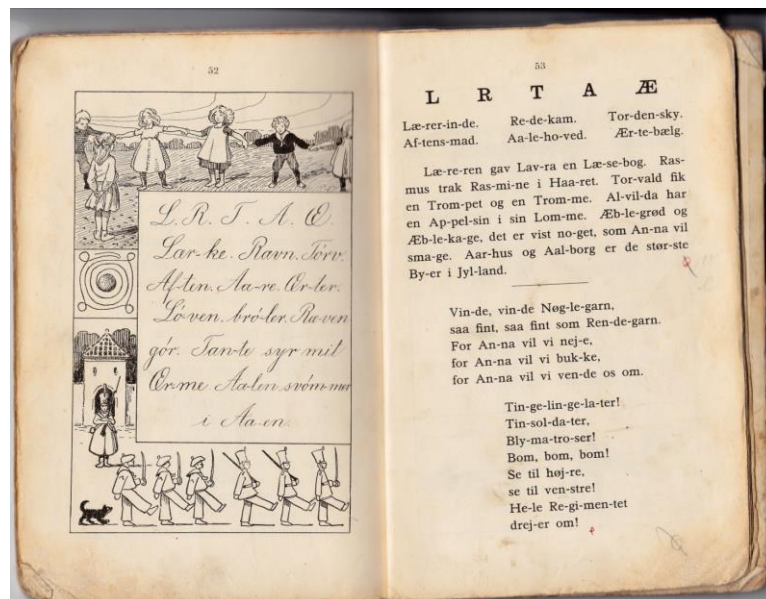 52
L. R. T. A. Æ.
Lær-ke. Ravn. Törv.
Af-ten. Aa-re. Ær-ter.
Lö-ven. brö-ler. Ræ-ven
gör. Tan-te syr mit
Ær-me. Aa-len svöm-mer
i Aa-en.
53
L R T A Æ
Læ-rer-in-de. Re-de-kam. Tor-den-sky.
Af-tens-mad. Aa-le-ho-ved. Ær-te-bælg.
Læ-re-ren gav Lav-ra en Læ-se-bog. Ras-
mus trak Ras-mi-ne i Haa-ret. Tor-vald fik
en Trom-pet og en Trom-me. Al-vil-da har
en Ap-pel-sin i sin Lom-me. Æb-le-grød og
Æb-le-ka-ge, det er vist no-get, som An-na vil
sma-ge. Aar-hus og Aal-borg er de stør-ste
By-er i Jyl-land.
Vin-de, vin-de Nøg-le-garn,
saa fint, saa fint som Ren-de-garn.
For An-na vil vi nej-e,
for An-na vil vi buk-ke,
for An-na vil vi ven-de os om.
Tin-ge-lin-ge-la-ter!
Tin-sol-da-ter,
Bly-ma-tro-ser!
Bom, bom, bom!
Se til høj-re,
se til ven-stre!
He-le Re-gi-men-tet
drej-er om!